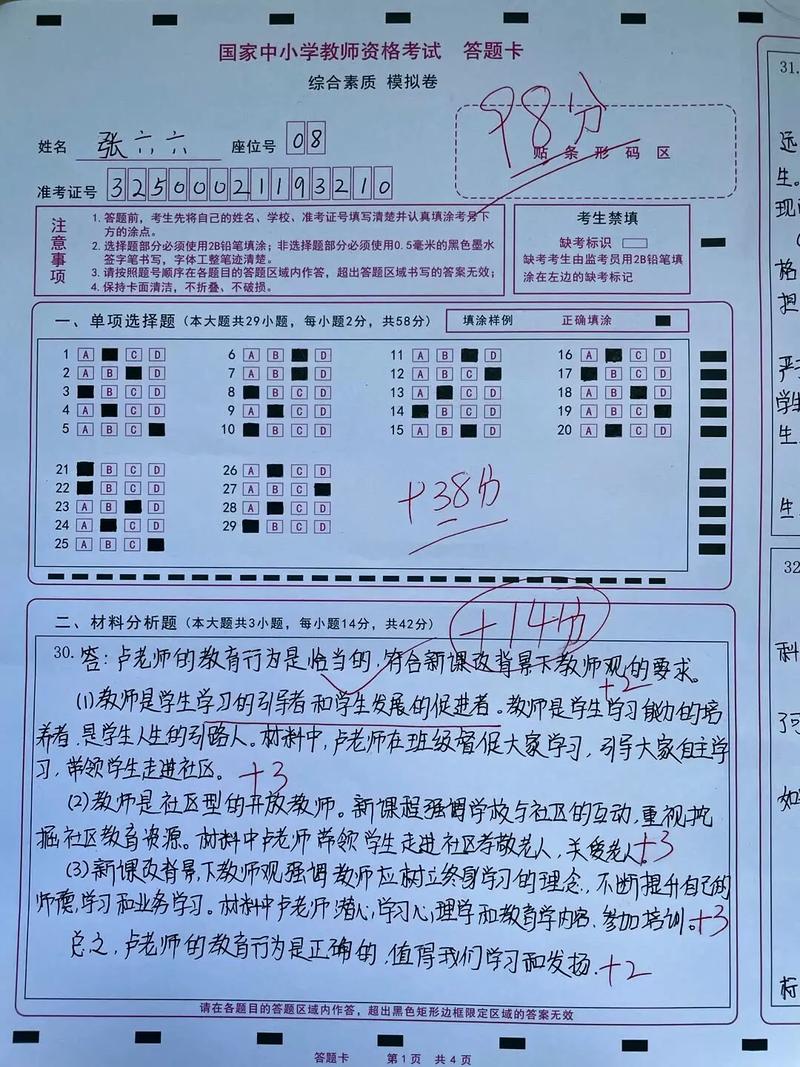 国家中小学教师资格考试 答题卡
综合素质 模拟卷
98分
贴 条 形 码 区
姓名 张六六 座位号 08
准考证号 32500021193210
注意事项
1. 答题前,考生先将自己的姓名、学校、准考证号填写清楚并认真填涂考号下
方的涂点。
2. 选择题部分必须使用2B铅笔填涂;非选择题部分必须使用0.5毫米的黑色墨水
签字笔书写,字体工整笔迹清楚。
3. 请按照题号顺序在各题目的答题区域内作答,超出答题区域书写的答案无效;
4. 保持卡面清洁,不折叠、不破损。
考生禁填
缺考标识
缺考考生由监考员用2B铅笔填
涂在左边的缺考标记
一、单项选择题(本大题共29小题,每小题2分,共58分) 填涂样例 正确填涂
1 A C D 6 A B D 11 A B D 16 A C D
2 A B D 7 A B D 12 A B C 17 B C D
3 B C D 8 B C D 13 A C D 18 A B D
4 A C D 9 A C D 14 B C D 19 A B C
5 A B C 10 B C D 15 A B D 20 A C D
21 B C D 26 A C D
22 B C D 27 A B C
23 A B D 28 A C D
24 A C D 29 B C D
25 A B C
+38分
二、材料分析题(本大题共3小题,每小题14分,共42分) +14分
30. 答:卢老师的教育行为是恰当的,符合新课改背景下教师观的要求。
+2
(1)教师是学生学习的引导者和学生发展的促进者。教师是学生学习能力的培
养者,是学生人生的引路人。材料中,卢老师在班级督促大家学习,引导大家自主学
习,带领学生走进社区。 +3
(2)教师是社区型的开放教师。新课程强调学校与社区的互动,重视挖
掘社区教育资源。材料中卢老师带领学生走进社区孝敬老人,关爱老人 +3
(3)新课改背景,下教师观强调教师应树立终身学习的理念,不断提升自己的
师德,学习和业务学习。材料中卢老师潜心学习心理学和教育学内容、参加培训。 +3
总之,卢老师的教育行为是正确的,值得我们学习和发扬. +2
请在各题目的答题区域内作答,超出黑色矩形边框限定区域的答案无效
答题卡 第1页 共4页
31.
远
生。
现
格
把
学生
生
生
32
科
了
如